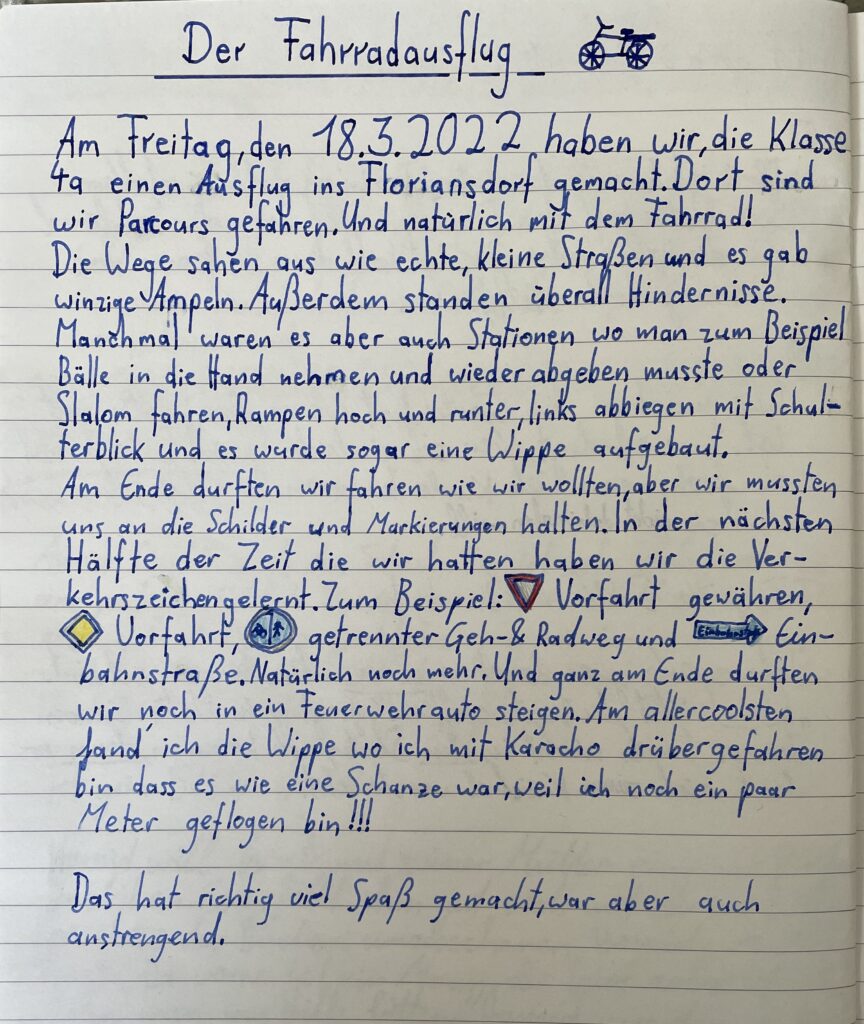 Der Fahrradausflug
Am Freitag, den 18.3.2022 haben wir, die Klasse
4a einen Ausflug ins Floriansdorf gemacht. Dort sind
wir Parcours gefahren. Und natürlich mit dem Fahrrad!
Die Wege sahen aus wie echte, kleine Straßen und es gab
winzige Ampeln. Außerdem standen überall Hindernisse.
Manchmal waren es aber auch Stationen wo man zum Beispiel
Bälle in die Hand nehmen und wieder abgeben musste oder
Slalom fahren, Rampen hoch und runter, links abbiegen mit Schul-
terblick und es wurde sogar eine Wippe aufgebaut.
Am Ende durften wir fahren wie wir wollten, aber wir mussten
uns an die Schilder und Markierungen halten. In der nächsten
Hälfte der Zeit die wir hatten haben wir die Ver-
kehrszeichen gelernt. Zum Beispiel: Vorfahrt gewähren,
Vorfahrt, getrennter Geh- & Radweg und Einbahnstraße Ein-
bahnstraße. Natürlich noch mehr. Und ganz am Ende durften
wir noch in ein Feuerwehrauto steigen. Am allercoolsten
fand ich die Wippe wo ich mit Karacho drübergefahren
bin dass es wie eine Schanze war, weil ich noch ein paar
Meter geflogen bin!!!
Das hat richtig viel Spaß gemacht, war aber auch
anstrengend.